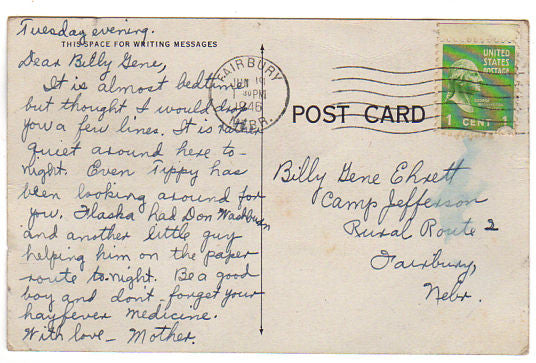 Tuesday evening.
THIS SPACE FOR WRITING MESSAGES
Dear Billy Gene,
It is almost bedtime
but thought I would drop
you a few lines. It is rather
quiet around here to-
night. Even Tippy has
been looking around for
you. Flaska had Don Washburn
and another little guy
helping him on the paper
route to-night. Be a good
boy and don't forget your
hayfever medicine.
With love - Mother.
FAIRBURY
PM
1946
NEBR.
UNITED
STATES
POSTAGE
1 CENT 1
POST CARD
Billy Gene Ehrett
Camp Jefferson
Rural Route 2
Fairbury,
Nebr.